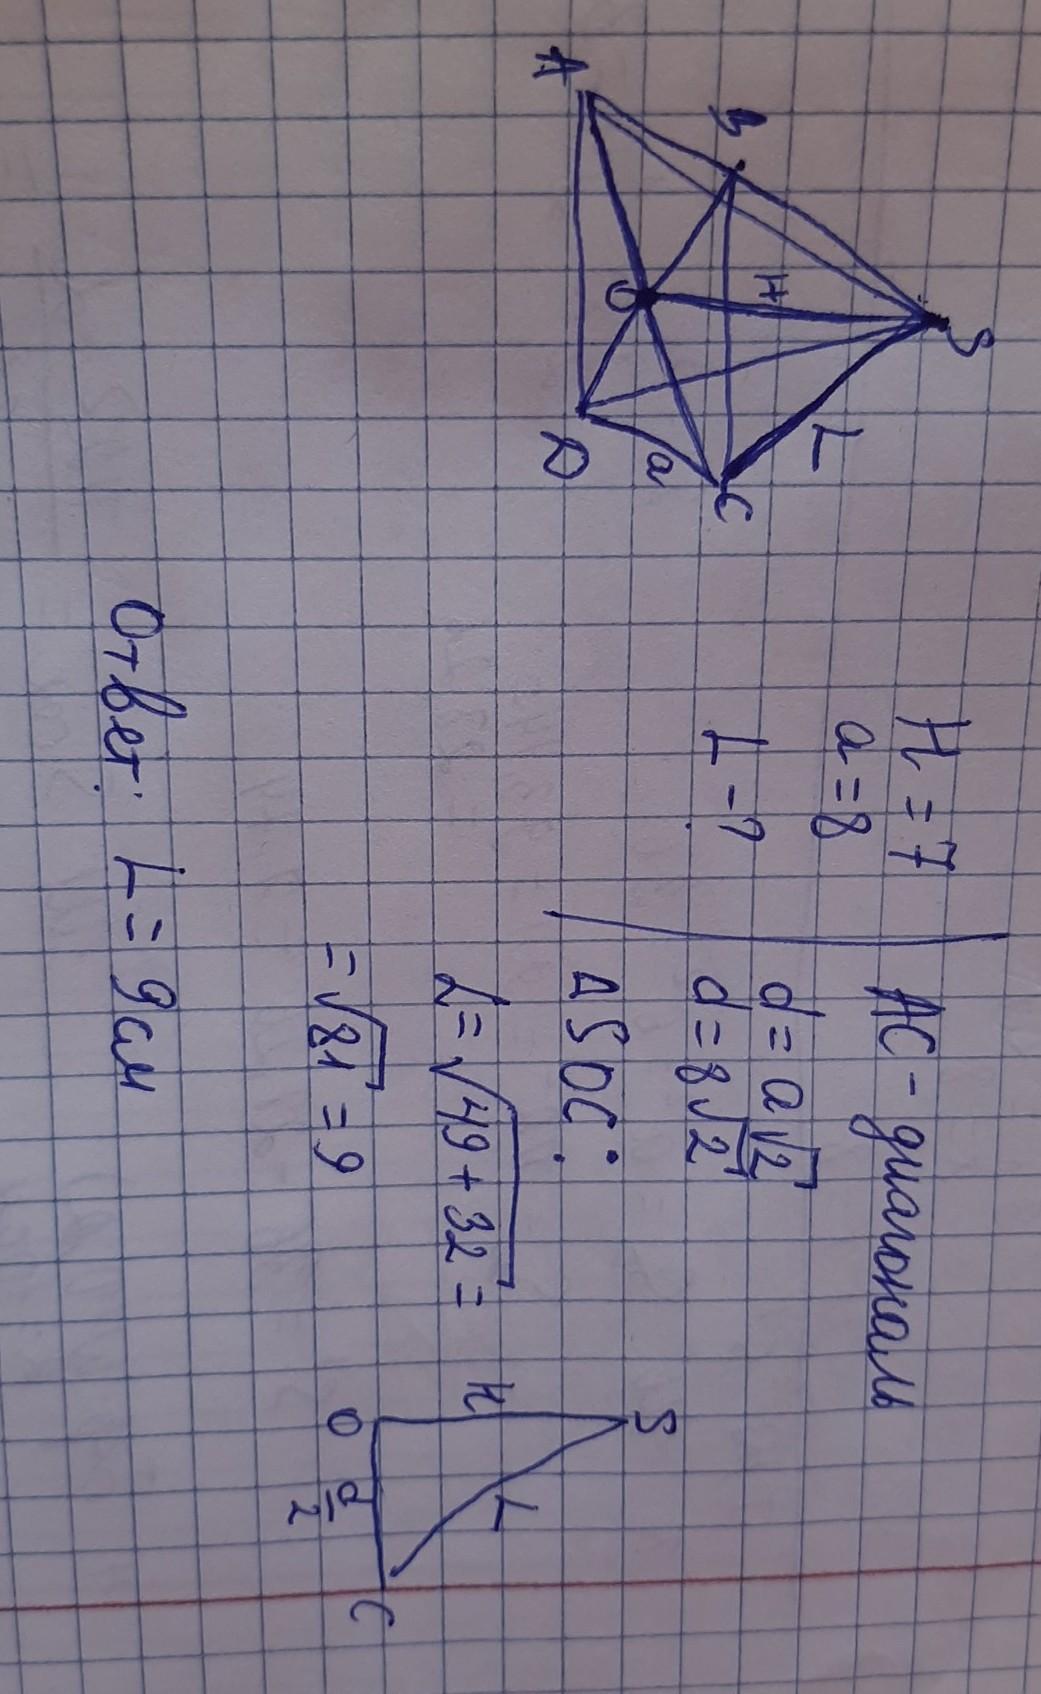 S
B
H
L
C
O
a
A
D
H = 7
a = 8
L - ?
AC - диагональ
d = a√2
d = 8√2
Δ SOC:
L = √49 + 32 =
= √81 = 9
S
H
L
O
d/2
C
Ответ: L = 9 см